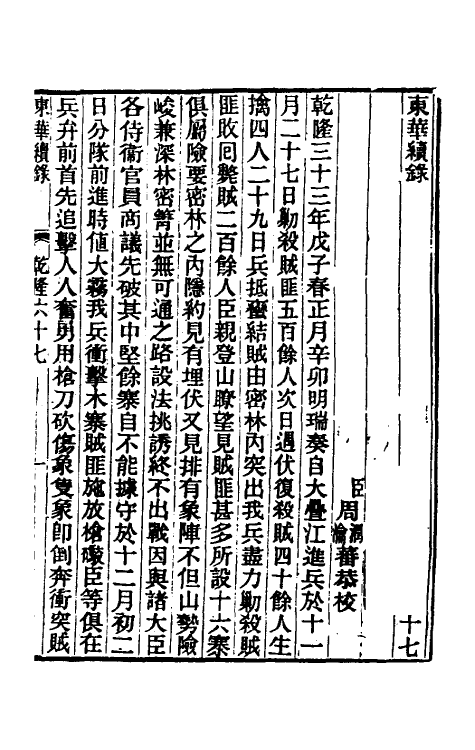 東華續錄
十七
臣周潤蕃恭校
乾隆三十三年戊子春正月辛卯明瑞奏自大疊江進兵於十一
月二十七日勦殺賊匪五百餘人次日遇伏復殺賊四十餘人生
擒四人二十九日兵抵蠻結賊由密林內突出我兵盡力勦殺賊
匪敗囘斃賊二百餘人臣親登山瞭望見賊匪甚多所設十六寨
俱屬險要密林之內隱約見有埋伏又見排有象陣不但山勢險
峻兼深林密箐並無可通之路設法挑誘終不出戰因與諸大臣
各侍衞官員商議先破其中堅餘寨自不能據守於十二月初二
日分隊前進時値大霧我兵衝擊木寨賊匪施放槍礮臣等俱在
兵弁前首先追擊人人奮勇用槍刀砍傷象隻象卽倒奔衝突賊
東華續錄 乾隆六十七 一